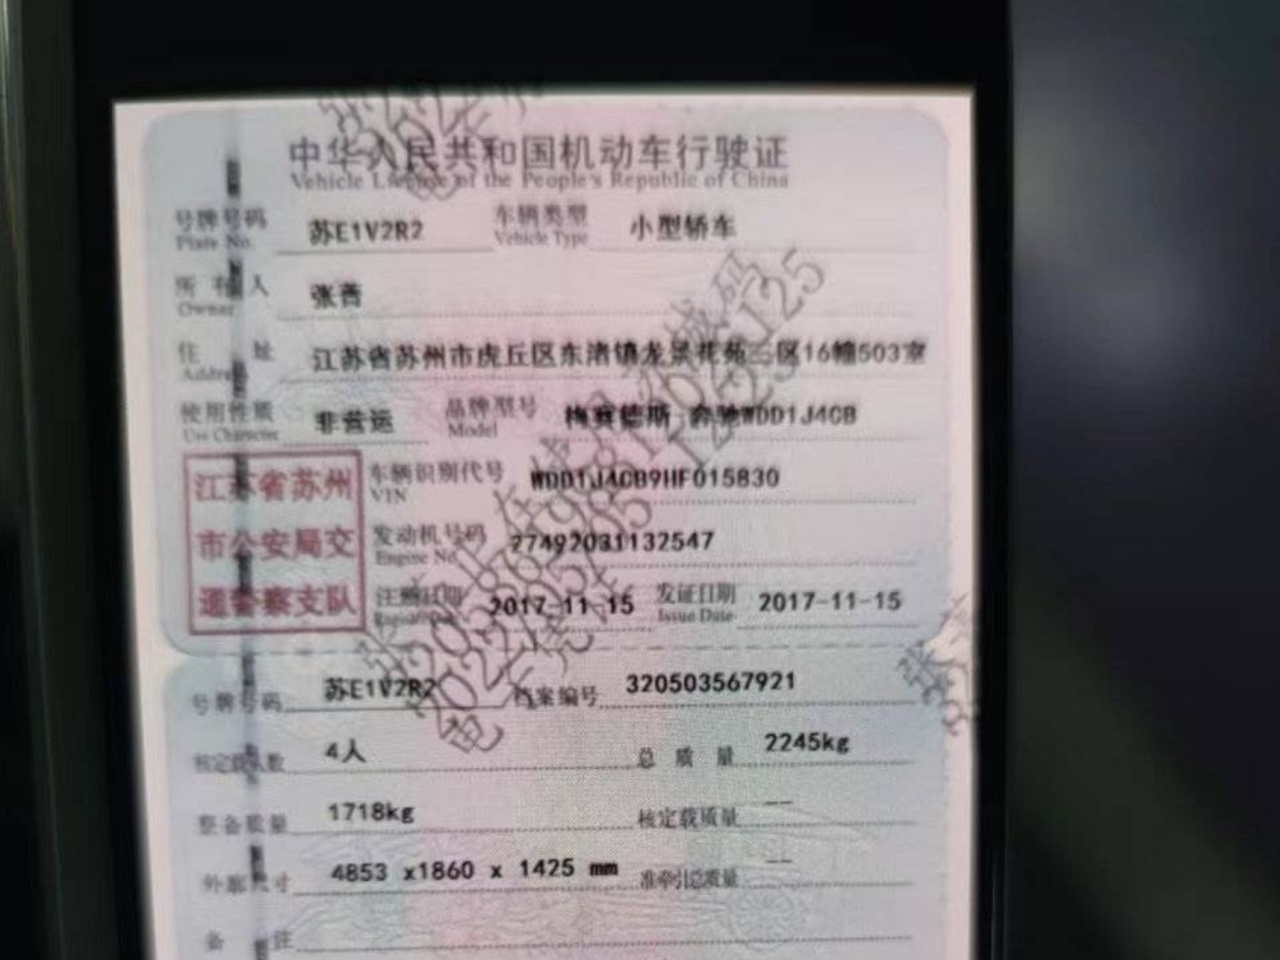 中华人民共和国机动车行驶证
Vehicle License of the People's Republic of China
号牌号码 苏E1V2R2 车辆类型 小型轿车
Plate No. Vehicle Type
所有人 张蔷
Owner
住址 江苏省苏州市虎丘区东渚镇龙景花苑三区16幢503室
Address
使用性质 非营运 品牌型号 梅赛德斯-奔驰WDD1J4CB
Use Character Model
江苏省苏州
市公安局交
通警察支队
车辆识别代号 WDD1J4CB9HF015830
VIN
发动机号码 27492031132547
Engine No.
注册日期 2017-11-15 发证日期 2017-11-15
Issue Date
号牌号码 苏E1V2R2 档案编号 320503567921
核定载人数 4人 总质量 2245kg
整备质量 1718kg 核定载质量 --
外廓尺寸 4853 x1860 x 1425 mm 准牵引总质量 --
备注